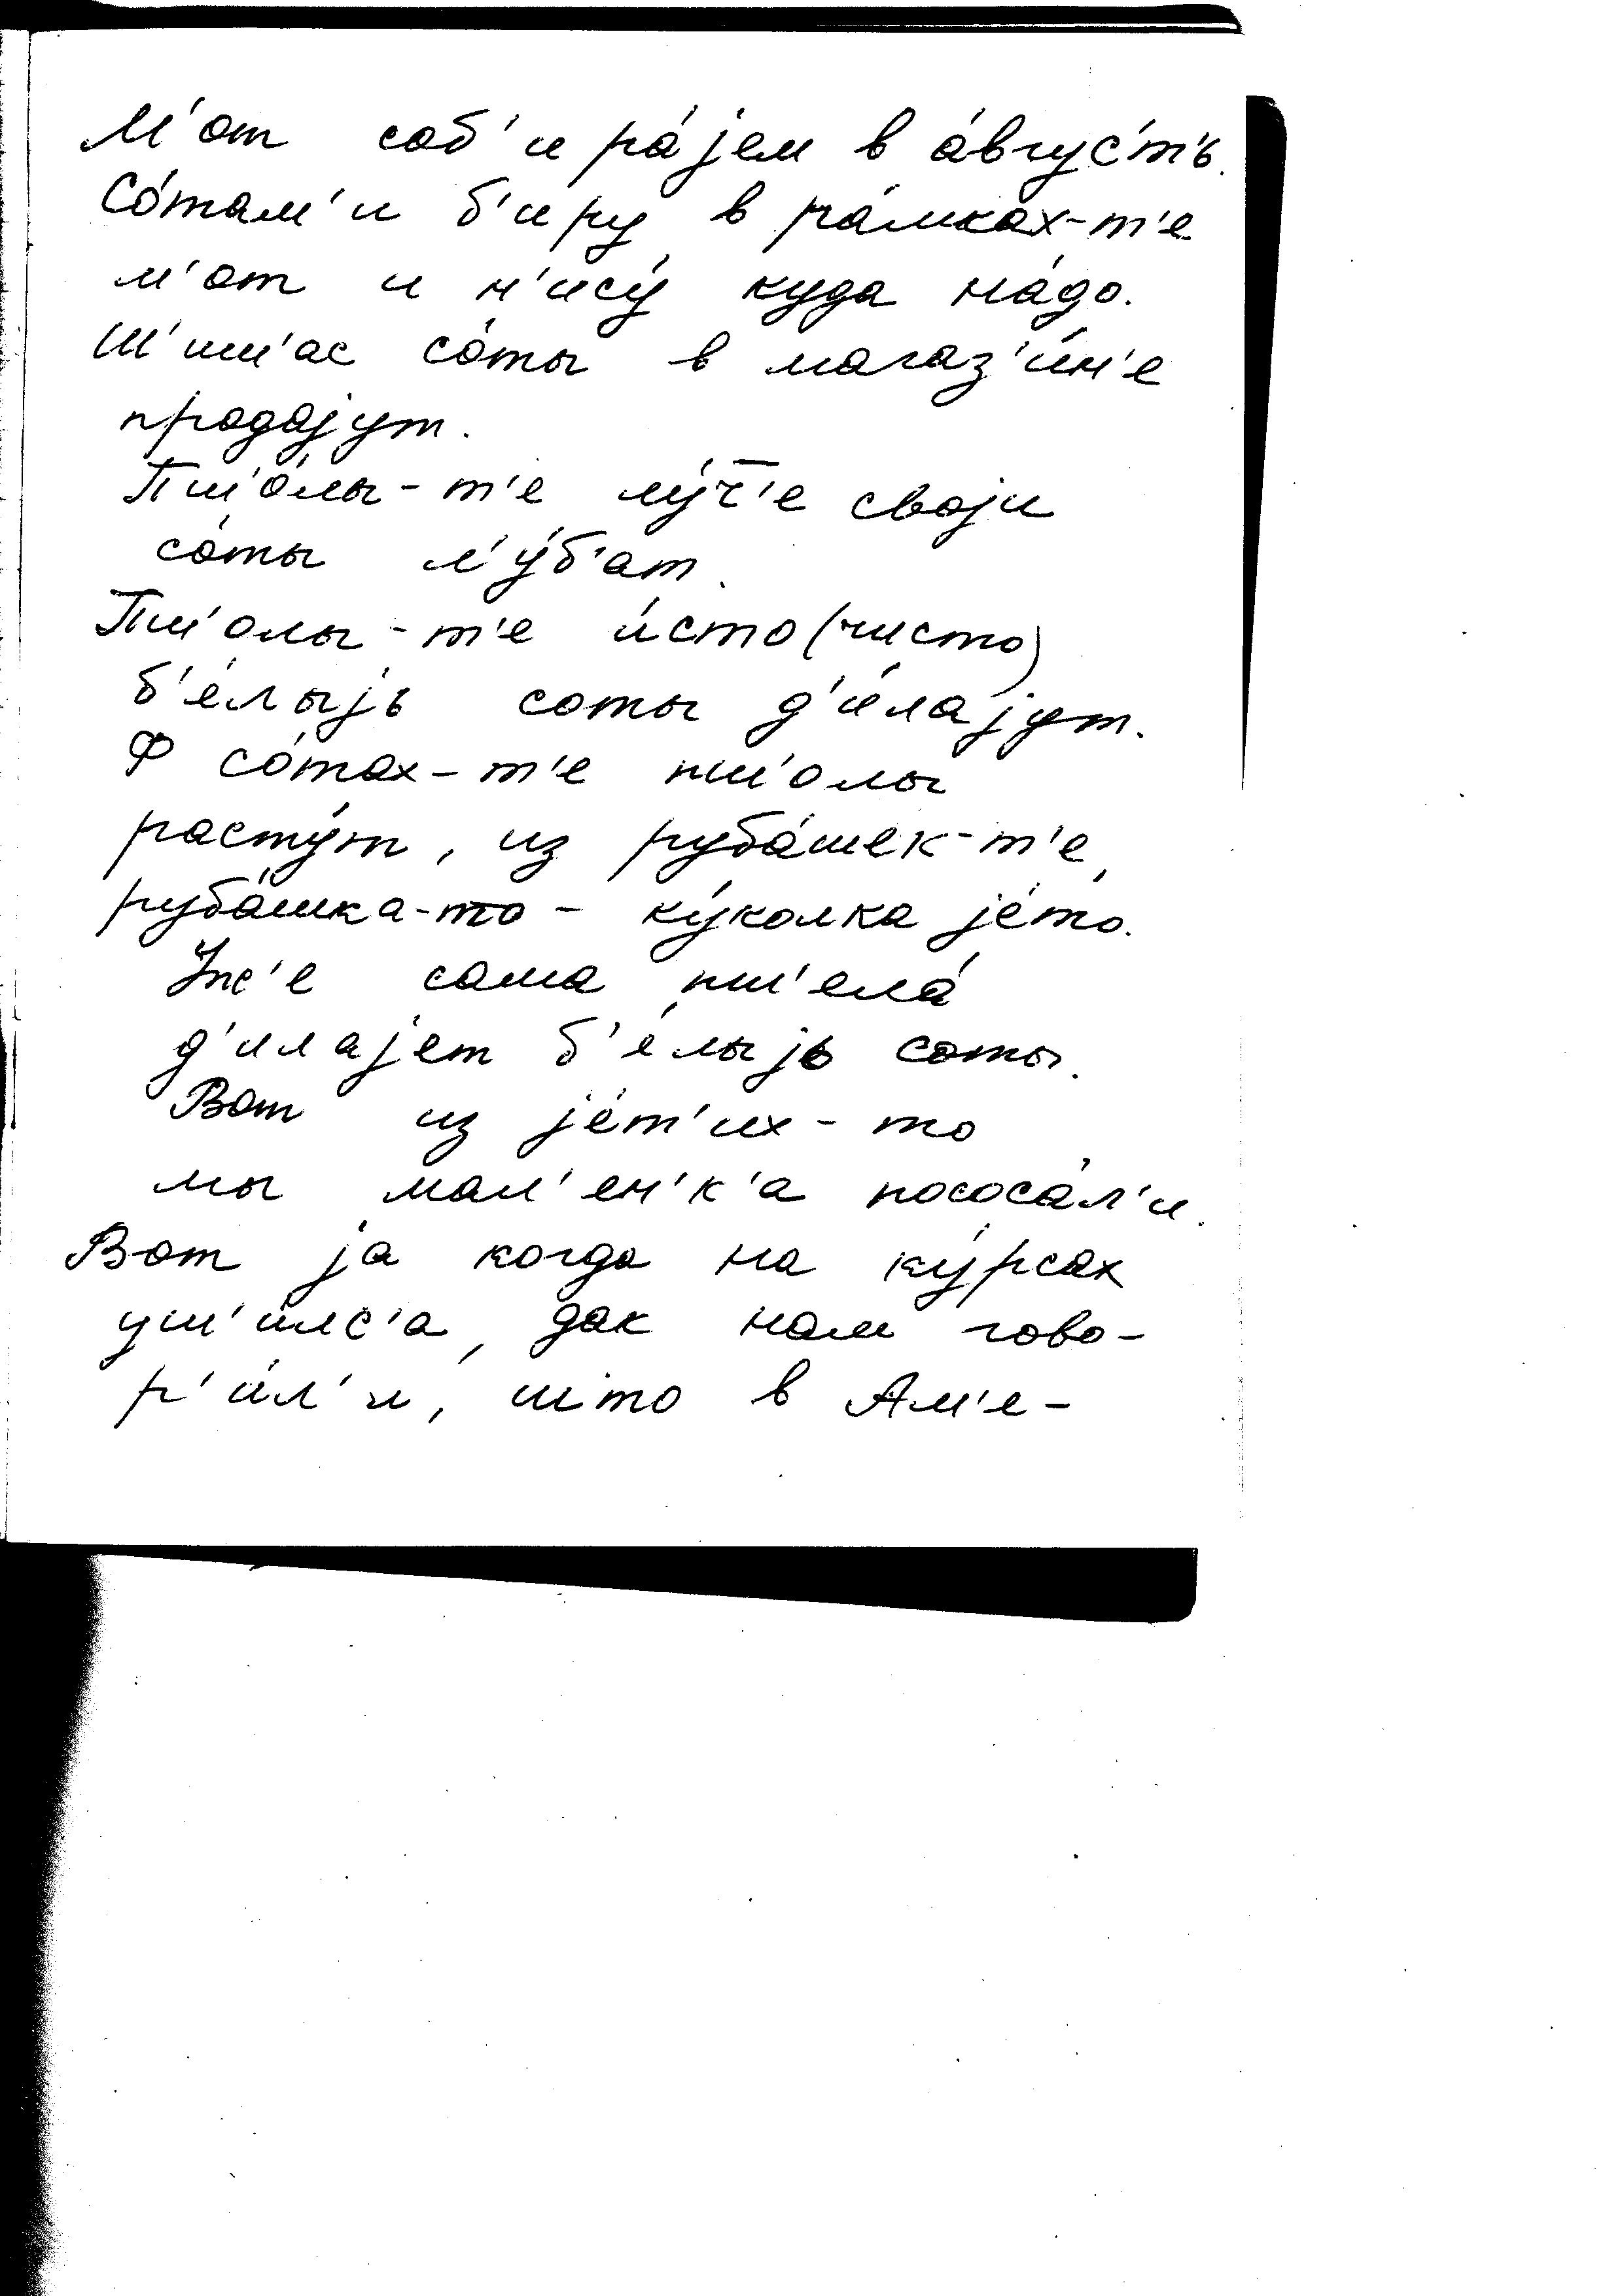 М'от соб'ира́јем в а́вгус'т'ь.
Со́там'и б'иру в ра́мках-т'е
м'от и н'ису́ куда на́до.
Ш'иш'ас со́ты в магаз'и́н'е
продају́т.
Пш'о́лы-т'е лу́ч̄'е своји
со́ты л'у́б'ат.
Пш'олы-т'е и́сто (чисто)
б'е́лыјь соты д'и́лајут.
Ф со́тах-т'е пш'олы
расту́т, из руба́шек-т'е,
руба́шка-то - ку́колка је́то.
Уж'е сама пш'ела́
д'илајет б'е́лыјь соты.
Вот из је́т'их-то
мы мал'ен'к'а пососа́л'и.
Вот ја когда на ку́рсах
уш'и́лс'а, дак нам гово-
р'и́л'и, што в Ам'е-